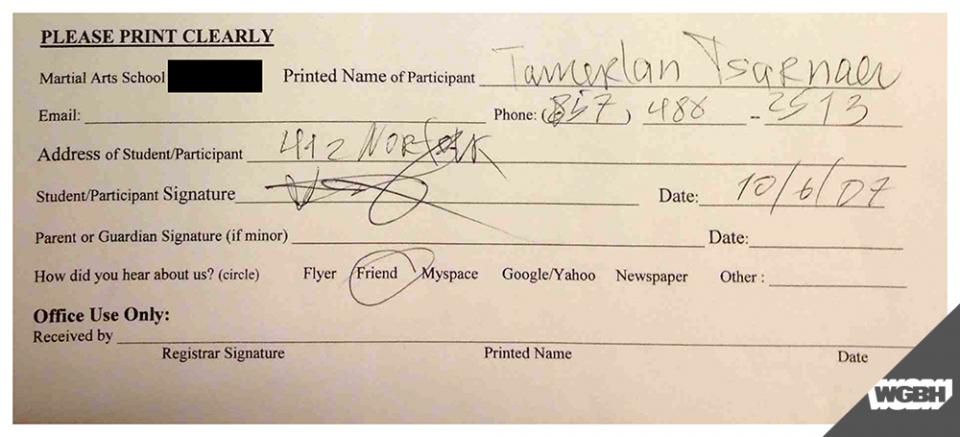 PLEASE PRINT CLEARLY
Martial Arts School Printed Name of Participant Tamerlan Tsarnaev
Email: Phone: (857) 488 - 2513
Address of Student/Participant 412 NORFOLK
Student/Participant Signature Date: 10/6/07
Parent or Guardian Signature (if minor) Date:
How did you hear about us? (circle) Flyer Friend Myspace Google/Yahoo Newspaper Other :
Office Use Only:
Received by
Registrar Signature Printed Name Date
WGBH